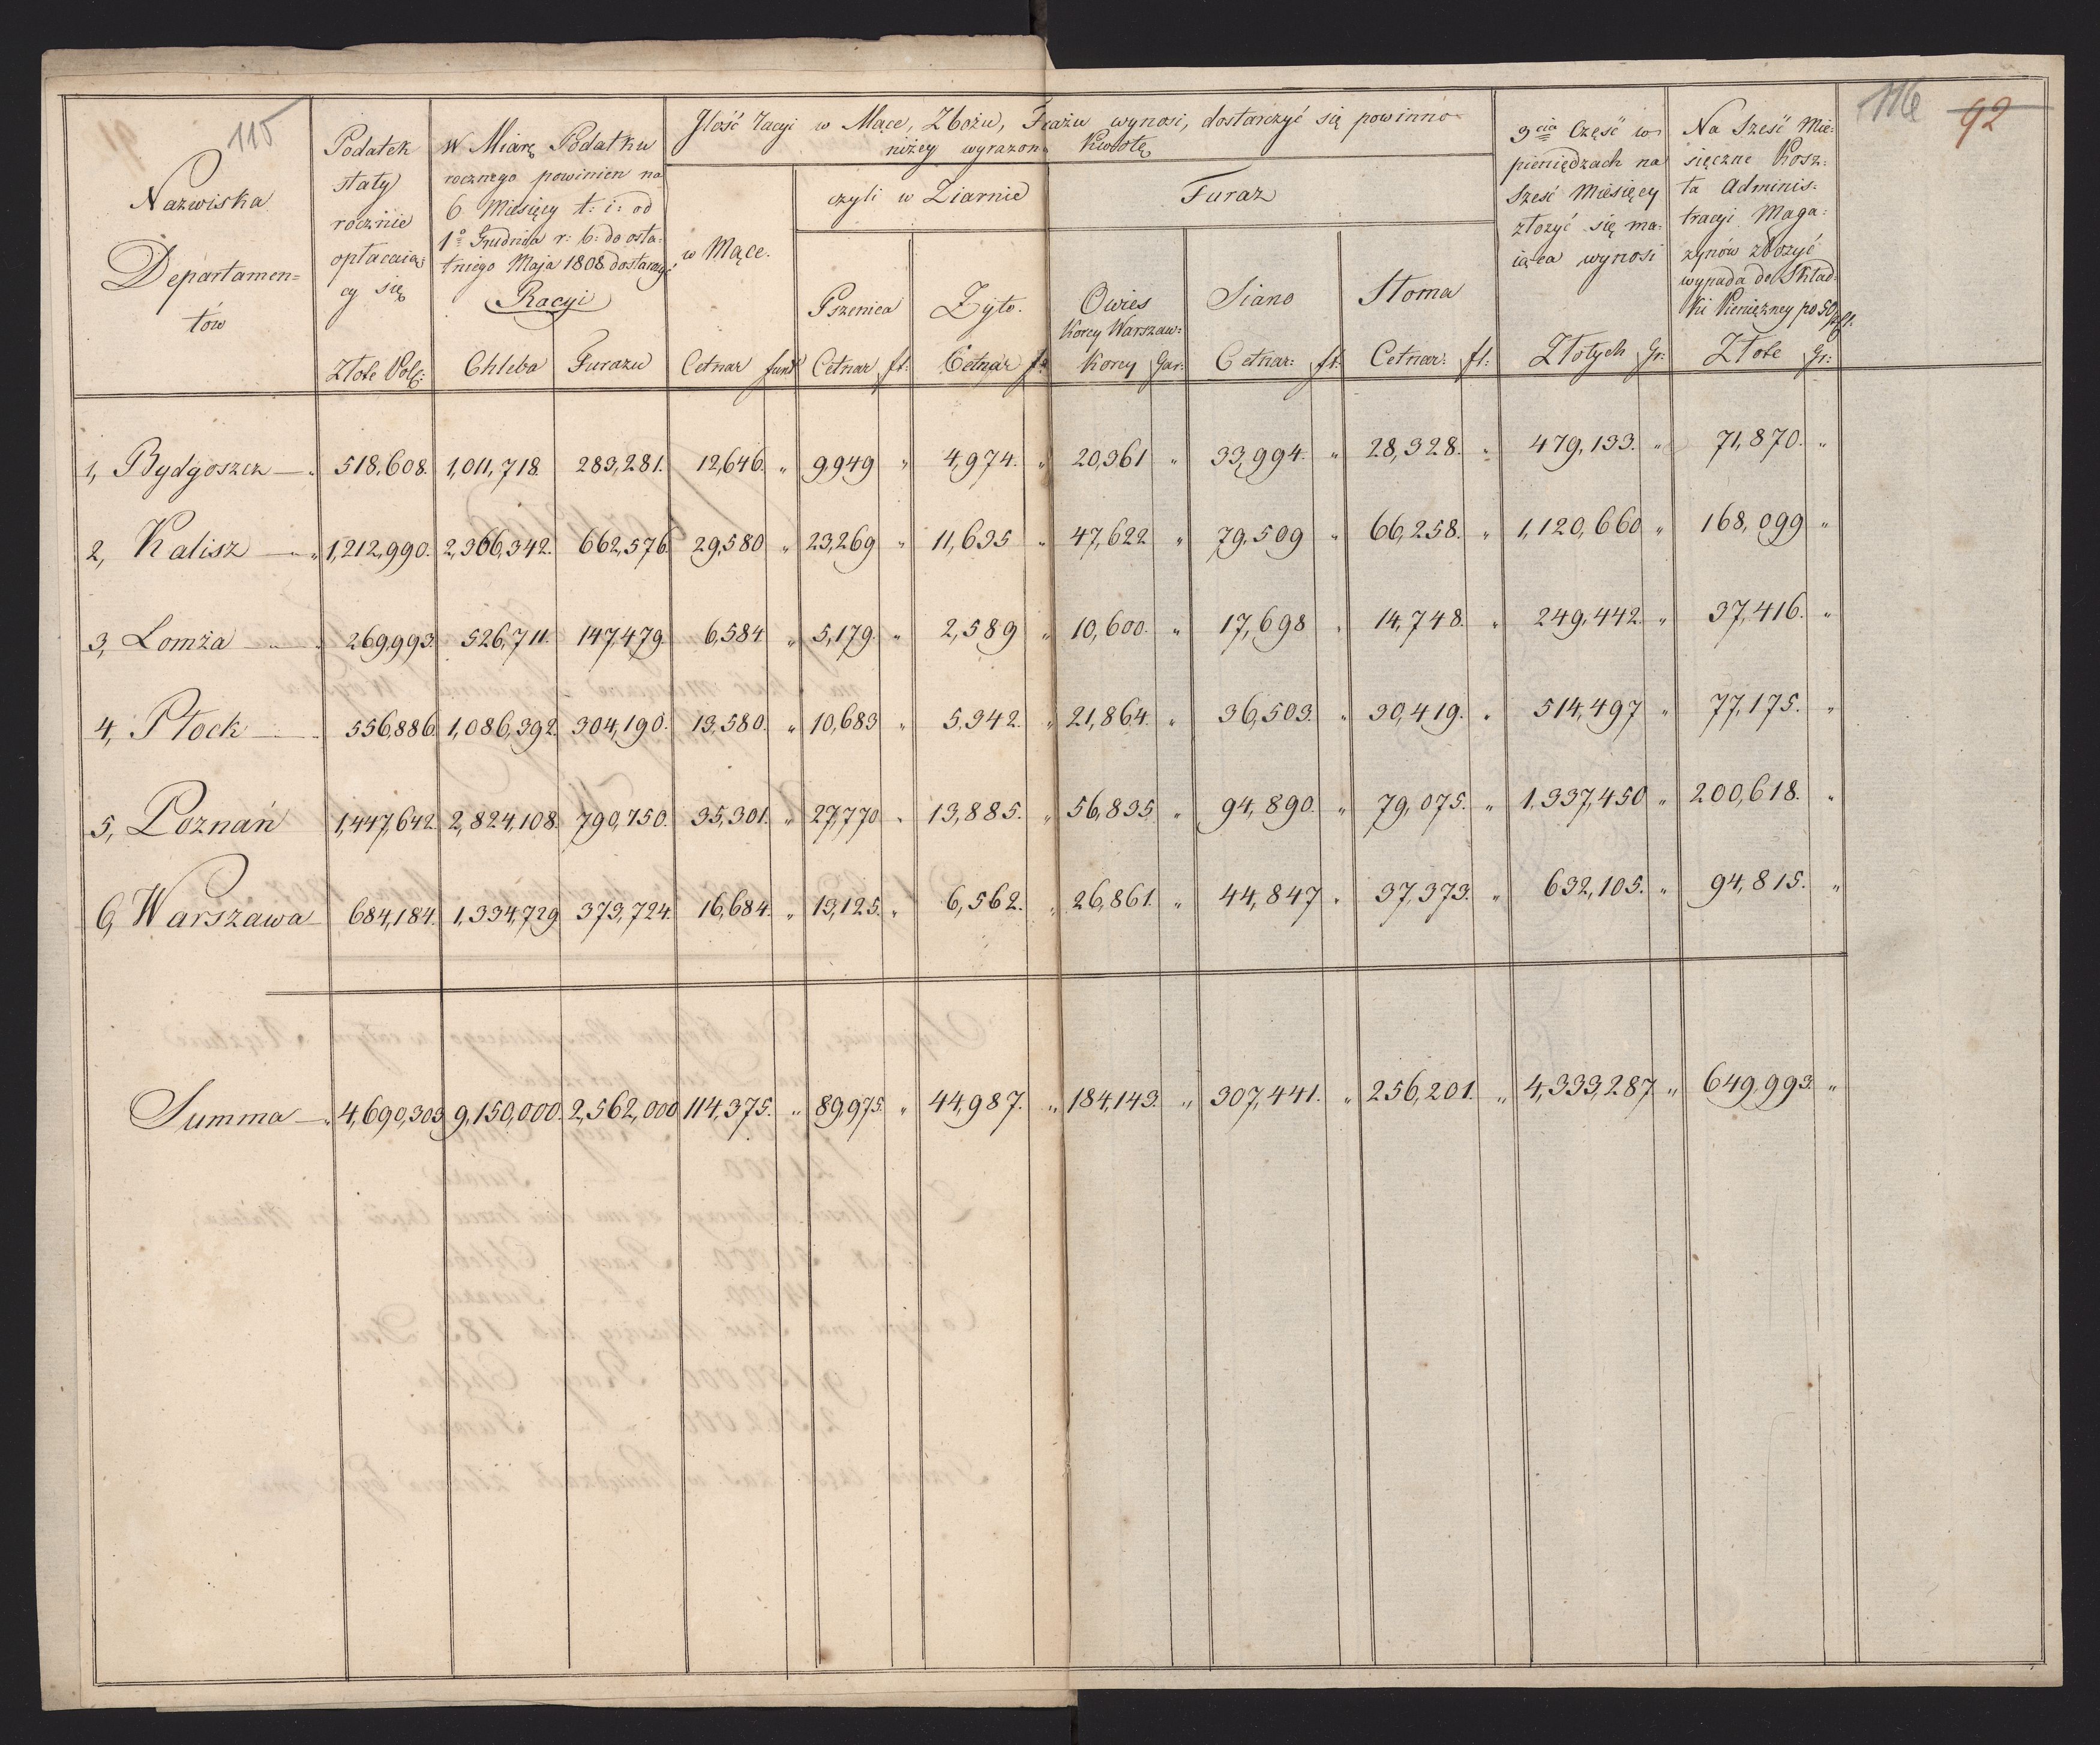 115
116 92
Nazwiska
Departamen=
tów
Podatek
stały
rocznie
opłacaią=
cy się
Złote Pols:
W Miarę Podatku
rocznego powinien na
6 Miesięcy t: i: od
1o Grudnia r: b: do osta=
tniego Maja 1808 dostarczyć
Racyi
Chleba Furażu
Ilość racyi w Mące, Zbożu, Frażu wynosi, dostarczyć się powinno
niżey wyrazon Kwotę
w Mące.
Cetnar funt
czyli w Ziarnie
Pszenica
Cetnar ft:
Żyto.
Cetnar ft:
Furaż
Owies
Korcy Warszaw:
Korcy Gar:
Siano
Cetnar: ft:
Słoma
Cetnar: ft:
3cia Część w
pieniędzach na
Sześć Miesięcy
złożyć się ma=
iąca wynosi
Złotych Gr:
Na Sześć Mie=
sięczne Kosz=
ta Adminis=
tracyi Maga=
zynów złożyć
wypada do Skład=
ki Pienięzney po 50
Złote Gr:
1, Bydgoszcz 518,608. 1,011,718. 283,281. 12,646. " 9,949 " 4,974. " 20,361 " 33,994. " 28,328. " 479,133. " 71,870. "
2, Kalisz " 1,212,990. 2,366,342. 662,576. 29,580 " 23,269 " 11,635 " 47,622 " 79,509 " 66,258. " 1,120,660 " 168,099 "
3, Lomża 269,993. 526,711. 147,479. 6,584 " 5,179. " 2,589 " 10,600. " 17,698 " 14,748. " 249,442. " 37,416. "
4, Płock 556,886. 1,086,392. 304,190. 13,580. " 10,683 " 5,342. " 21,864. " 36,503. " 30,419. " 514,497 " 77,175. "
5, Poznań 1,447,642. 2,824,108. 790,750. 35,301. " 27,770 " 13,885. " 56,835 " 94,890. " 79,075. " 1,337,450 " 200,618. "
6, Warszawa 684,184. 1,334,729 373,724. 16,684. " 13,125. " 6,562. " 26,861. " 44,847 " 37,373. " 632,105. " 94,815. "
Summa " 4,690,303 9,150,000. 2,562,000 114,375. " 89,975. " 44,987. " 184,143. " 307,441. " 256,201. " 4,333,287 " 649,993. "